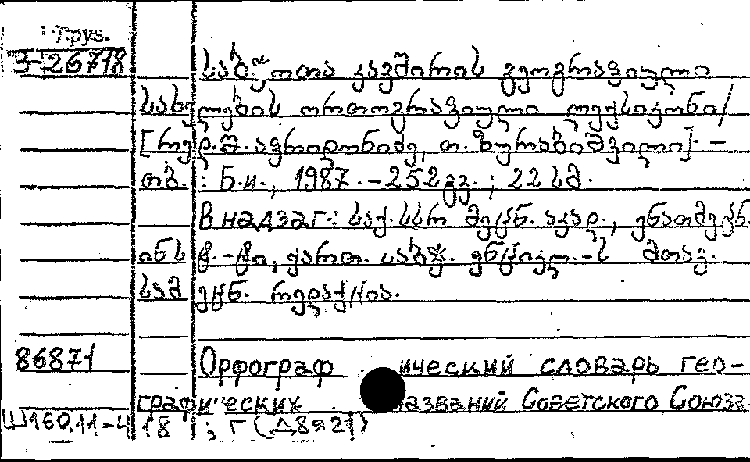 Груз.
3-26718
საბჭოთა კავშირის გეოგრაფიული
სახელების ორთოგრაფიული ლექსიკონი/
[რედ. მ. აფრიდონიძე, თ. ზურაბიშვილი]. –
თბ. : Б.и., 1987. – 252 გვ. ; 22 სმ.
В надзаг.: საქ. სსრ მეცნ. აკად., ენათმეცნ.
ინს ტ.-ტი, ქართ. საბჭ. ენციკლ.-ს მთავ.
სამ ეცნ. რედაქცია.
86871 Орфограф ический словарь гео-
графических названий Советского Союза
18 ; Г (Д8я21)